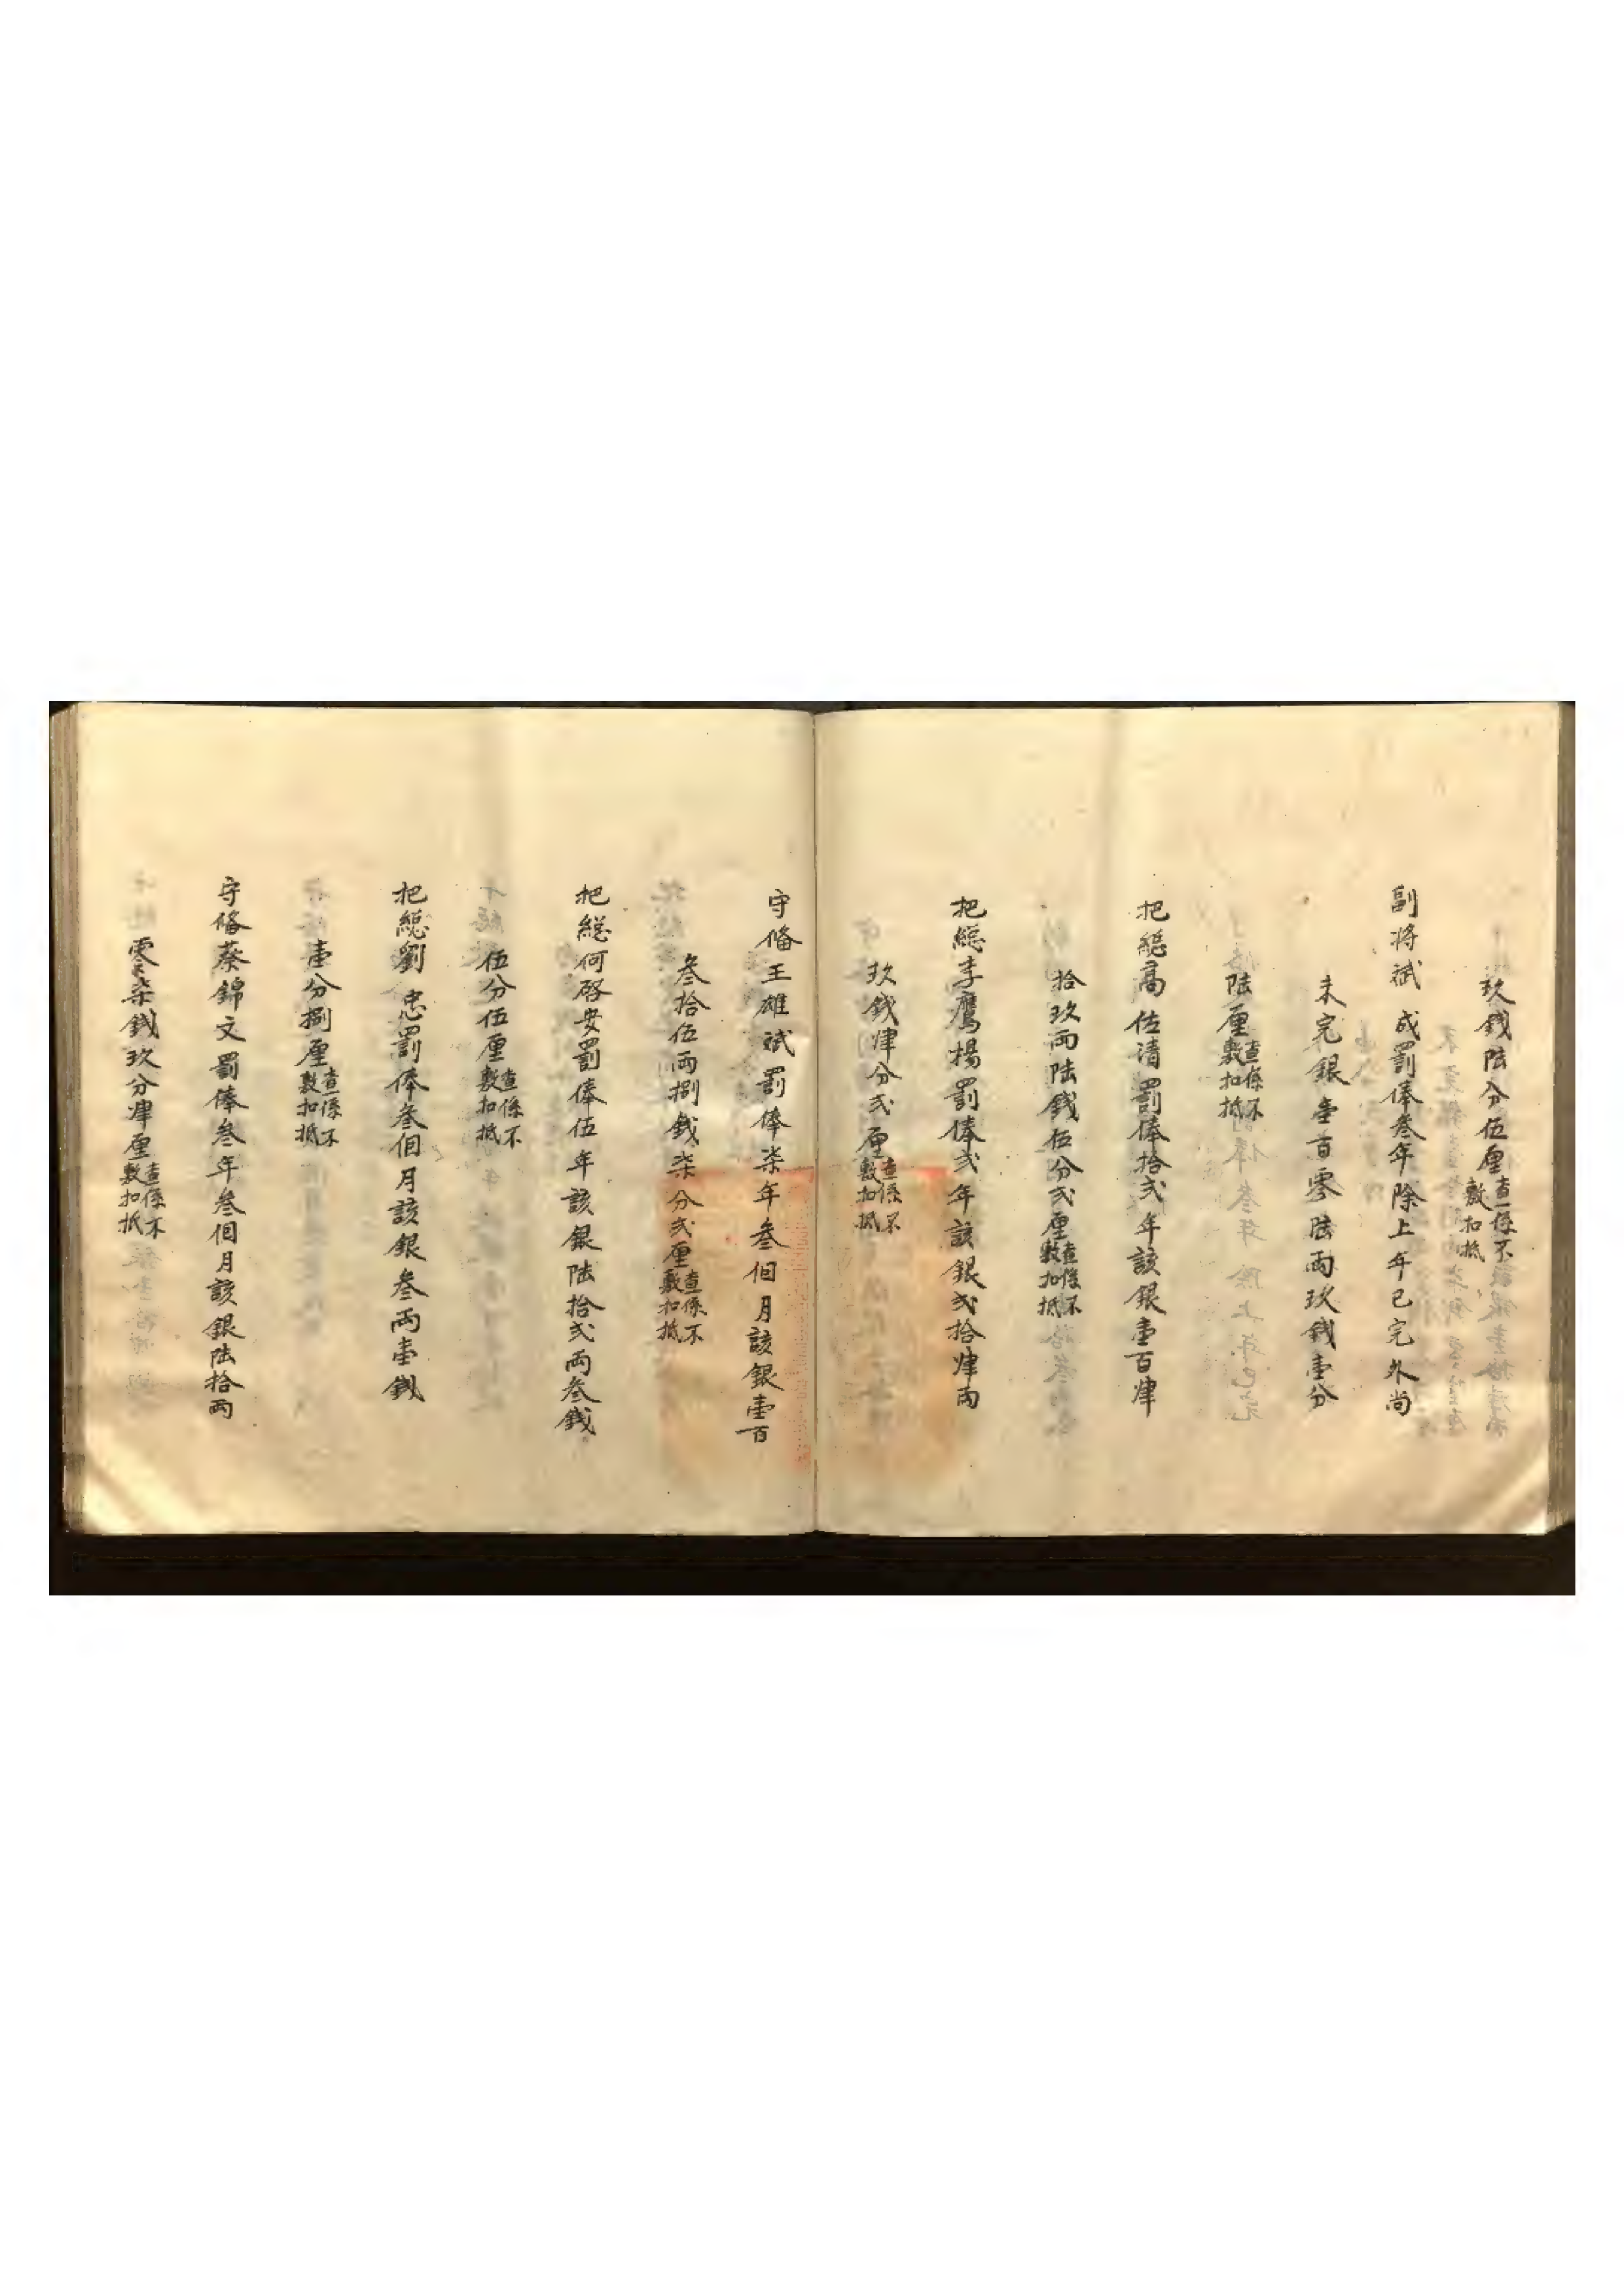 玖錢陸分伍厘查係不敷扣抵
副將斌 成罰俸叁年除上年已完外尚
未完銀壹百零陸兩玖錢壹分
陸厘查係不敷扣抵
把總高佐清罰俸拾弍年該銀壹百肆
拾玖兩陸錢伍分弍厘查係不敷扣抵
把總李鷹揚罰俸弍年該銀弍拾肆兩
玖錢肆分弍厘查係不敷扣抵
守俻王雄斌罰俸柒年叁個月該銀壹百
叁拾伍兩捌錢柒分弍厘查係不敷扣抵
把總何啓安罰俸伍年該銀陸拾弍兩叁錢
伍分伍厘查係不敷扣抵
把總劉 忠罰俸叁個月該銀叁兩壹錢
壹分捌厘查係不敷扣抵
守俻蔡錦文罰俸叁年叁個月該銀陸拾兩
零柒錢玖分肆厘查係不敷扣抵